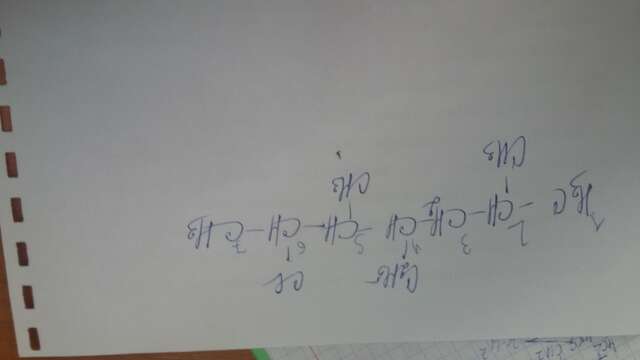 C₂H₅ Cl
1 2 3 4 5 6 7
H₃C - CH - CH₂ - CH - CH - CH - CH₃
CH₃ CH₃